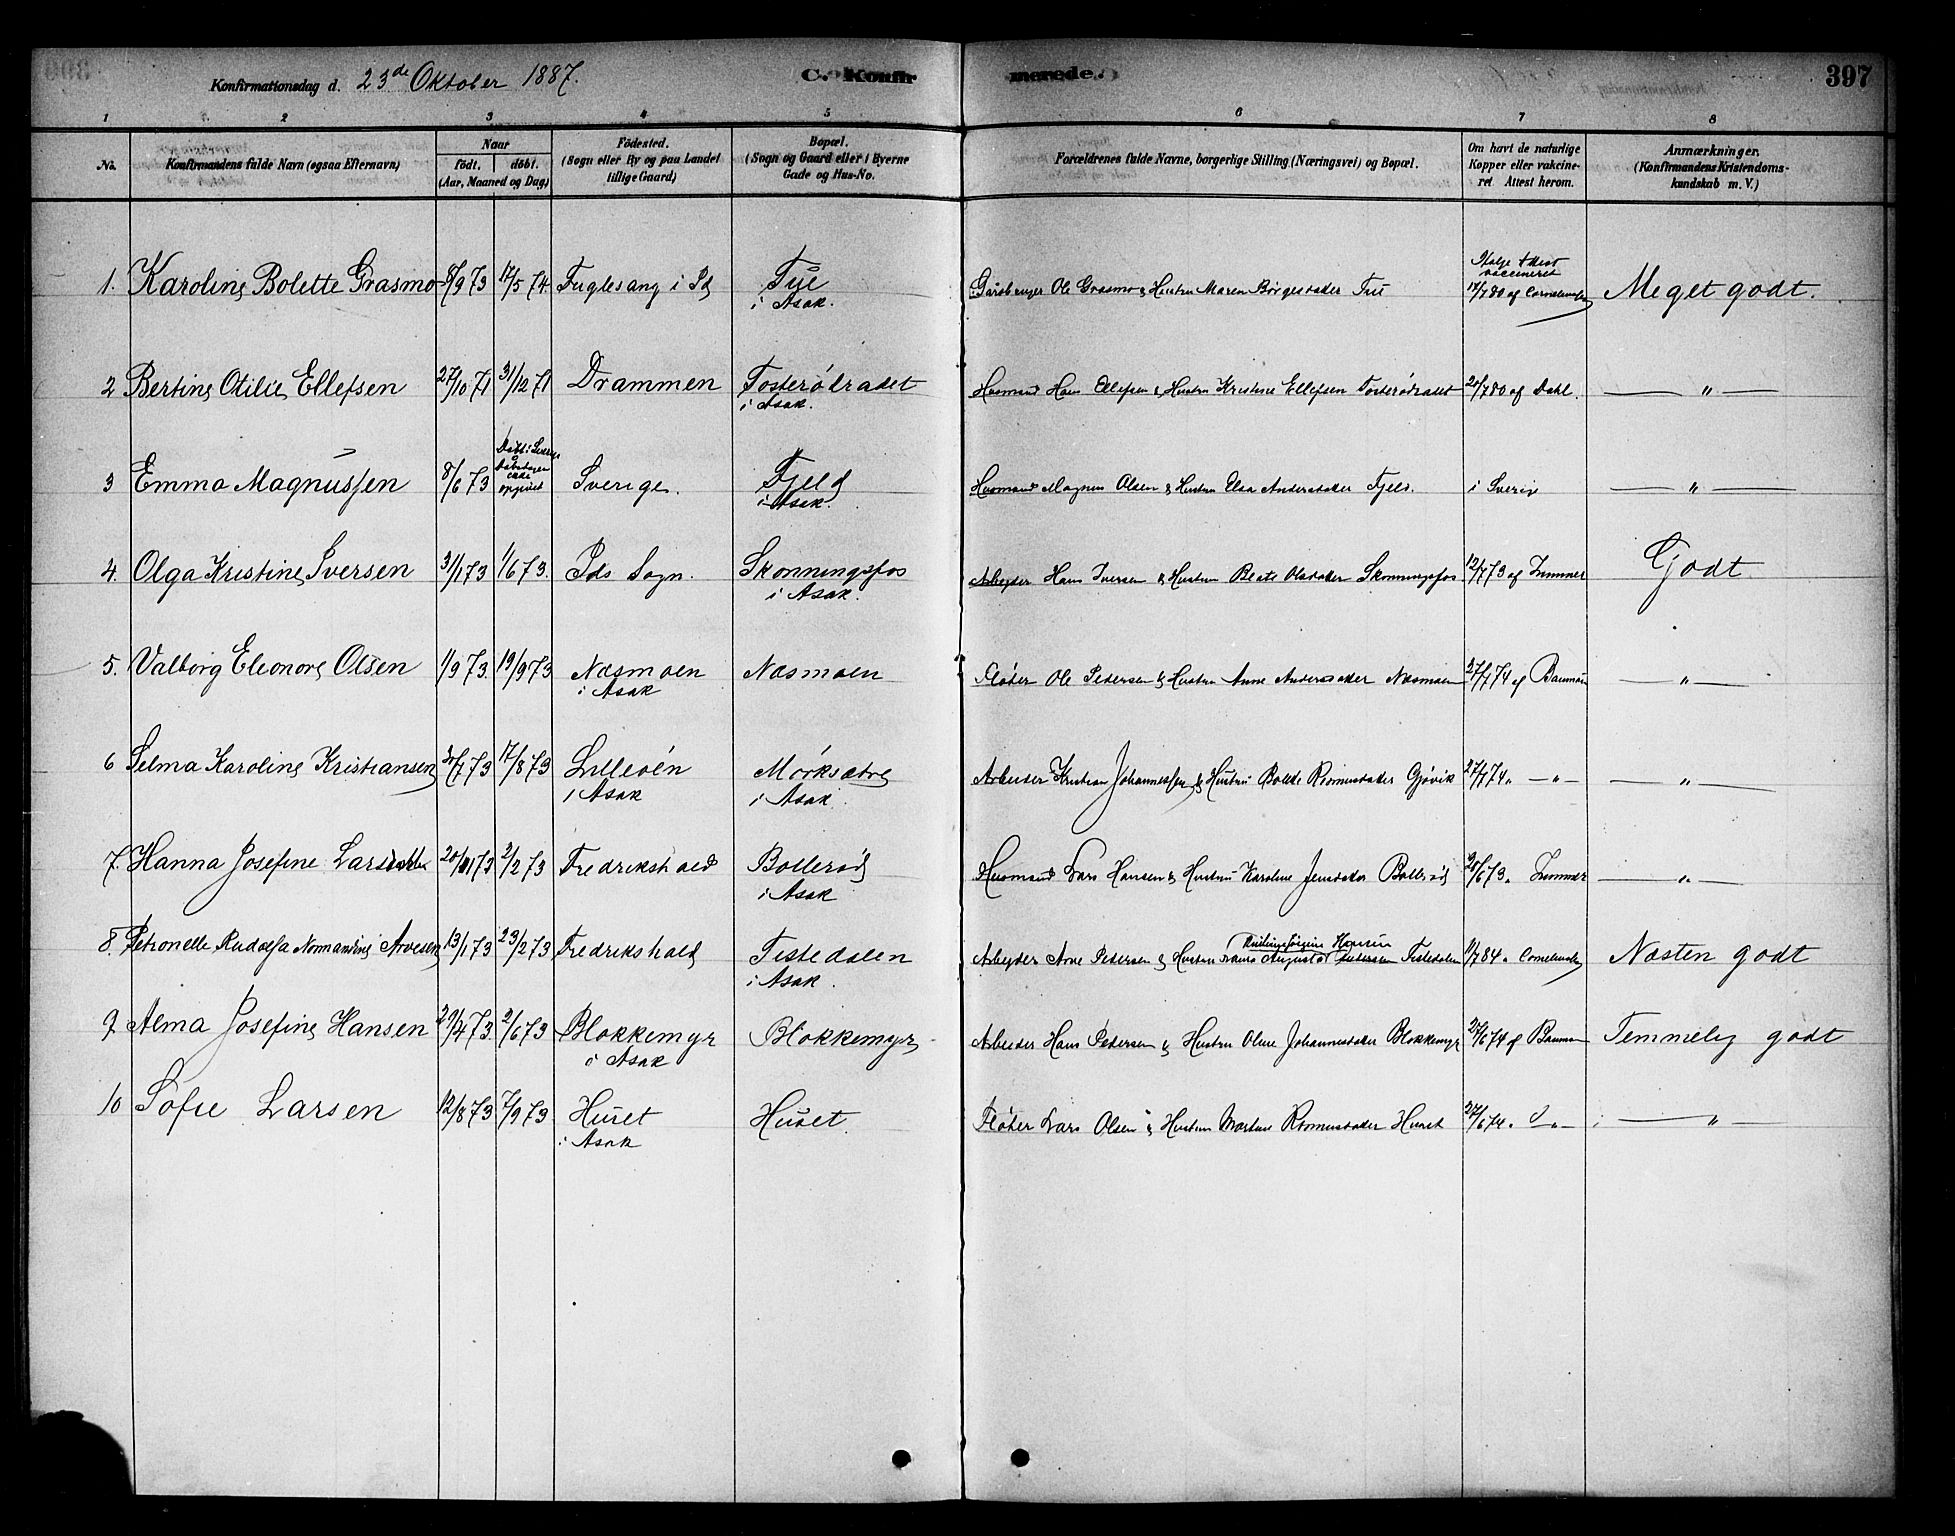 Konfirmationsdag d. 23de Oktober 1887.
C. Konfirmerede.
397
1 2 3 4 5 6 7 8
No. Konfirmandens fulde Navn (ogsaa Efternavn) Naar født. døbt. (Aar, Maaned og Dag) Födested. (Sogn eller By og paa Landet tillige Gaard) Bopæl. (Sogn og Gaard eller i Byerne Gade og Hus-No. Forældrenes fulde Navne, borgerlige Stilling (Næringsvei) og Bopæl. Om havt de naturlige Kopper eller vakcineret Attest herom. Anmærkninger. (Konfirmandens Kristendomskundskab m. V.)
1. Karoline Bolette Grasmo 8/9 73 17/5 74 Fuglesang i Id Tue i Asak. Gaardbruger Ole Grasmo & Hustru Maren Børgesdatter Tue Ifølge Attest vaccineret 17/7 80 af Meget godt.
2 Bertine Otilie Ellefsen 27/10 71 31/12 71 Drammen Fosterødradet i Asak. Husmand Hans Ellefsen & Hustru Kristine Ellefsen Fosterødradet 20/7 80 af Dahl. — " —
3 Emma Magnussen 8/6 73 Døbt i Sverige Dåbsdagen ikke opgivet Sverige. Fjeld i Asak. Husmand Magnus Olsen & Hustru Elsa Andersdatter Fjeld. i Sverige — " —
4. Olga Kristine Iversen 31/1 73 1/6 73. Ids Sogn. Skonningsfos i Asak. Arbeyder Hans Iversen & Hustru Beate Olsdatter Skonningsfos 12/7 73 af Zimmer Godt
5. Valborg Eleonore Olsen 1/9 73. 19/9 73 Næsmoen i Asak Næsmoen Fløder Ole Pedersen & Hustru Anne Andersdatter Næsmoen 27/7 74 af Bauman — " —
6 Selma Karoline Kristiansen 3/7 73 17/8 73 Lilleøen i Asak Mørksætre i Asak. Arbeider Kristian Johannessen & Hustru Bolette Rasmusdatter Gjøvik 27/7 74 " — " — — " —
7. Hanna Josefine Larsdatter 20/1 73 2/2 73 Fredrikshald Bollerød i Asak Husmand Lars Hansen & Hustru Karoline Jensdatter Bollerød 20/6 73 " Zimmer — " —
8. Petronelle Rudolfa Normandine Arvesen 13/1 73 23/2 73 Fredrikshald Tistedalen i Asak. Arbeyder Arve Pedersen & Hustru Augusta Hansen Tistedalen 11/7 84 " Næsten godt
9. Alma Josefine Hansen 29/4 73. 2/6 73 Blokkemyr i Asak Blokkemyr Arbeider Hans Pedersen & Hustru Oline Johannesdatter Blokkemyr 27/6 74 af Bauman Temmelig godt
10 Sofie Larsen 12/8 73 7/9 73. Huset i Asak Huset. Fløder Lars Olsen & Hustru Martine Rasmusdatter Huset 27/6 74 " — " — — " —